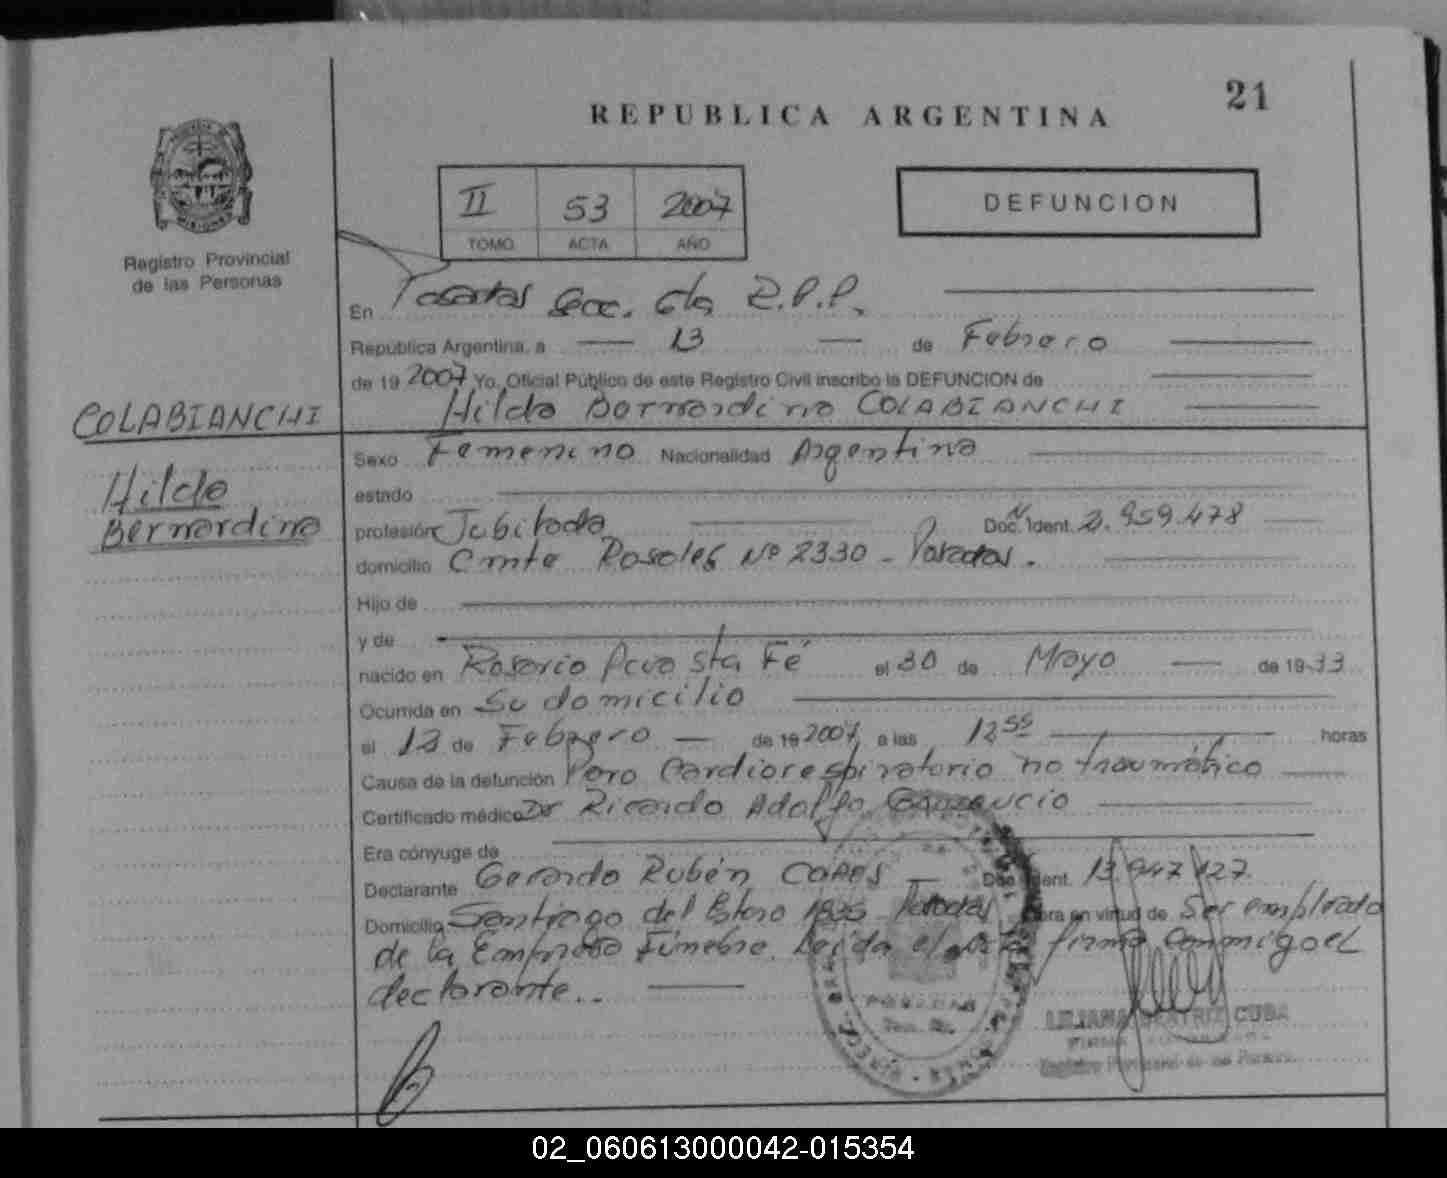 21
REPUBLICA ARGENTINA
II 53 2007
TOMO ACTA AÑO
DEFUNCION
Registro Provincial
de las Personas
En Posadas Secc. 6ta R.P.P.
República Argentina, a 13 de Febrero
de 19 2007 Yo, Oficial Público de este Registro Civil inscribo la DEFUNCION de
Hilda Bernardina COLABIANCHI
COLABIANCHI
Hilda
Bernardina
Sexo Femenino Nacionalidad Argentina
estado
profesión Jubilada Doc. Ident. 2.959.478
domicilio Cmte Rosales Nº 2330 - Posadas.
Hijo de
y de
nacido en Rosario Pcia Sta Fé el 30 de Mayo de 19 33
Ocurrida en Su domicilio
el 13 de Febrero de 19 2007 a las 12 horas
Causa de la defunción Paro Cardiorespiratorio no traumático
Certificado médico Dr Ricardo Adolfo
Era cónyuge de
Declarante Gerardo Rubén Doc. Ident. 13.947.127
Domicilio Santiago del Estero 1835 Posadas Obra en virtud de Ser empleado
de la Empresa Fúnebre. Leída el acta firma conmigo el
declarante..
POSADAS
LILIANA BEATRIZ CUBA
FIRMA AUTORIZADA
Registro Provincial de las Personas
02_060613000042-015354